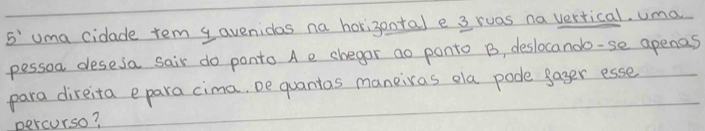 5' uma cidade tem 4 avenidas na horizontal e 3 ruas na vertical. uma
pessoa deseja sair do ponto A e chegar ao ponto B, deslocando-se apenas
para direita e para cima. De quantas maneiras ela pode fazer esse
percurso?